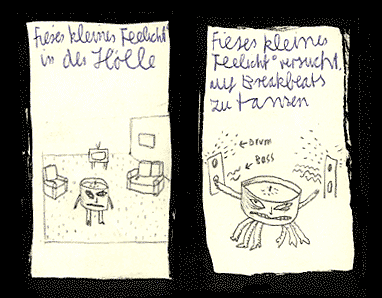 Fieses kleines Teelicht
in der Hölle
Fieses kleines
Teelicht versucht,
auf Breakbeats
zu tanzen
←DRUM
←BASS